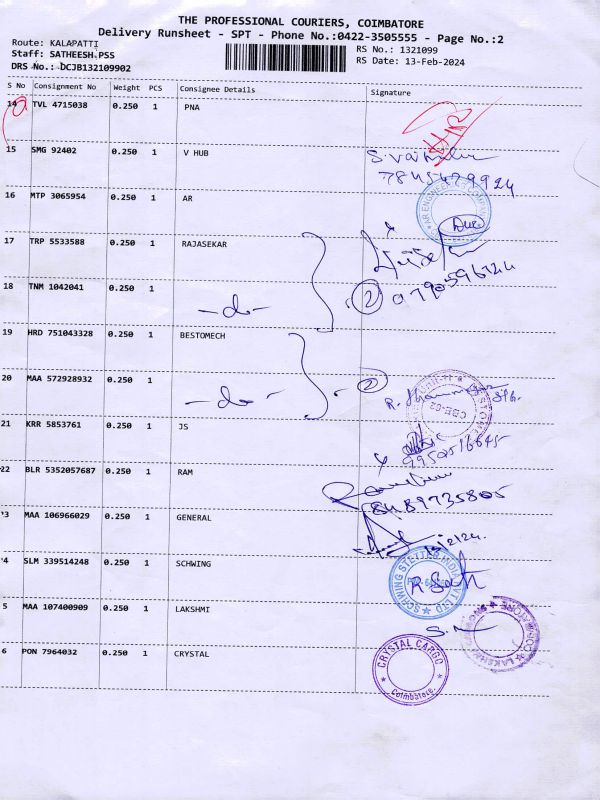 THE PROFESSIONAL COURIERS, COIMBATORE
Delivery Runsheet - SPT - Phone No.:0422-3505555 - Page No.:2
Route: KALAPATTI
Staff: SATHEESH PSS
DRS No.: DCJB132109902
RS No.: 1321099
RS Date: 13-Feb-2024
S No Consignment No Weight PCS Consignee Details Signature
14 TVL 4715038 0.250 1 PNA
15 SMG 92402 0.250 1 V HUB
16 MTP 3065954 0.250 1 AR
17 TRP 5533588 0.250 1 RAJASEKAR
18 TNM 1042041 0.250 1 -do- 2
19 HRD 751043328 0.250 1 BESTOMECH
20 MAA 572928932 0.250 1 -do- 2
21 KRR 5853761 0.250 1 JS
22 BLR 5352057687 0.250 1 RAM
8489735805
23 MAA 106966029 0.250 1 GENERAL
4 SLM 339514248 0.250 1 SCHWING
SCHWING STETTER INDIA PVT LTD
5 MAA 107400909 0.250 1 LAKSHMI
6 PON 7964032 0.250 1 CRYSTAL
CRYSTAL CARGO
Coimbatore.